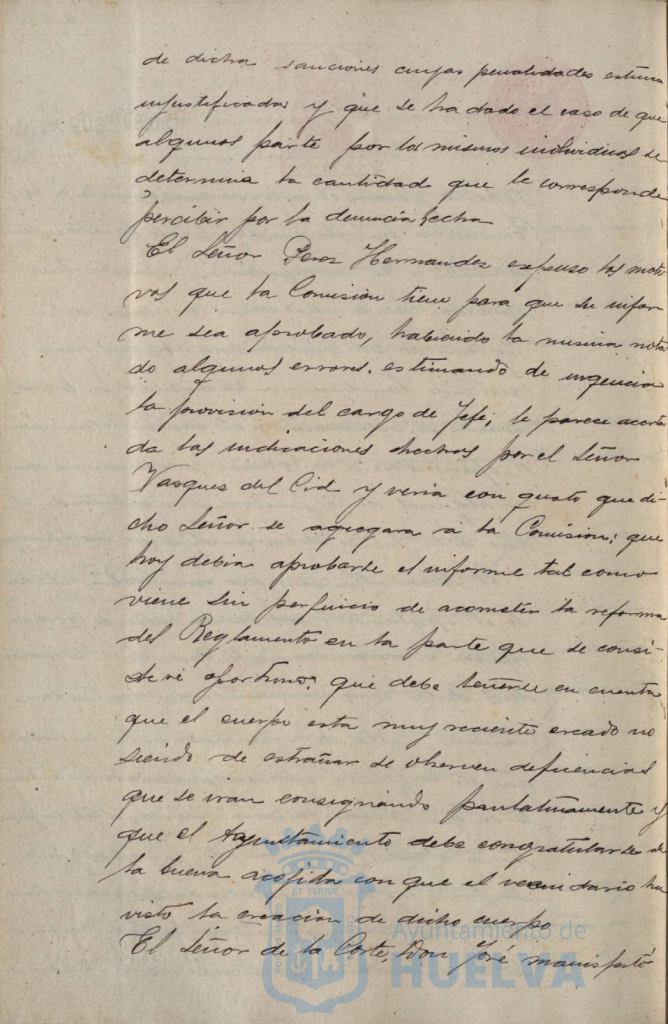 de dicha sanciones cuyas penalidades estima
injustificadas y que se ha dado el caso de que
algunos parte por los mismos individuos se
determina la cantidad que le corresponde
percibir por la denuncia hecha
El Señor Perez Hernandez expuso los moti
vos que la Comisión tiene para que su infor
me sea aprobado, habiendo la misma nota
do algunos errores. estimando de urgencia
la provisión del cargo de Jefe; le parece acerta
da las indicaciones hechas por el Señor
Vasques del Cid y veria con gusto que di
cho Señor se agregara a la Comisión; que
hoy debia aprobarse el informe tal como
viene sin perjuicio de acometer la reforma
del Reglamento en la parte que se consi-
dere oportuno; que debe tenerse en cuenta
que el cuerpo esta muy reciente creado no
siendo de estrañar se observen deficiencias
que se iran consignando paulatinamente y
que el Ayuntamiento debe congratularse de
la buena acogida con que el vecindario ha
visto la creacion de dicho cuerpo
El Señor de la Corte, Don José manifestó
Ayuntamiento de
HUELVA